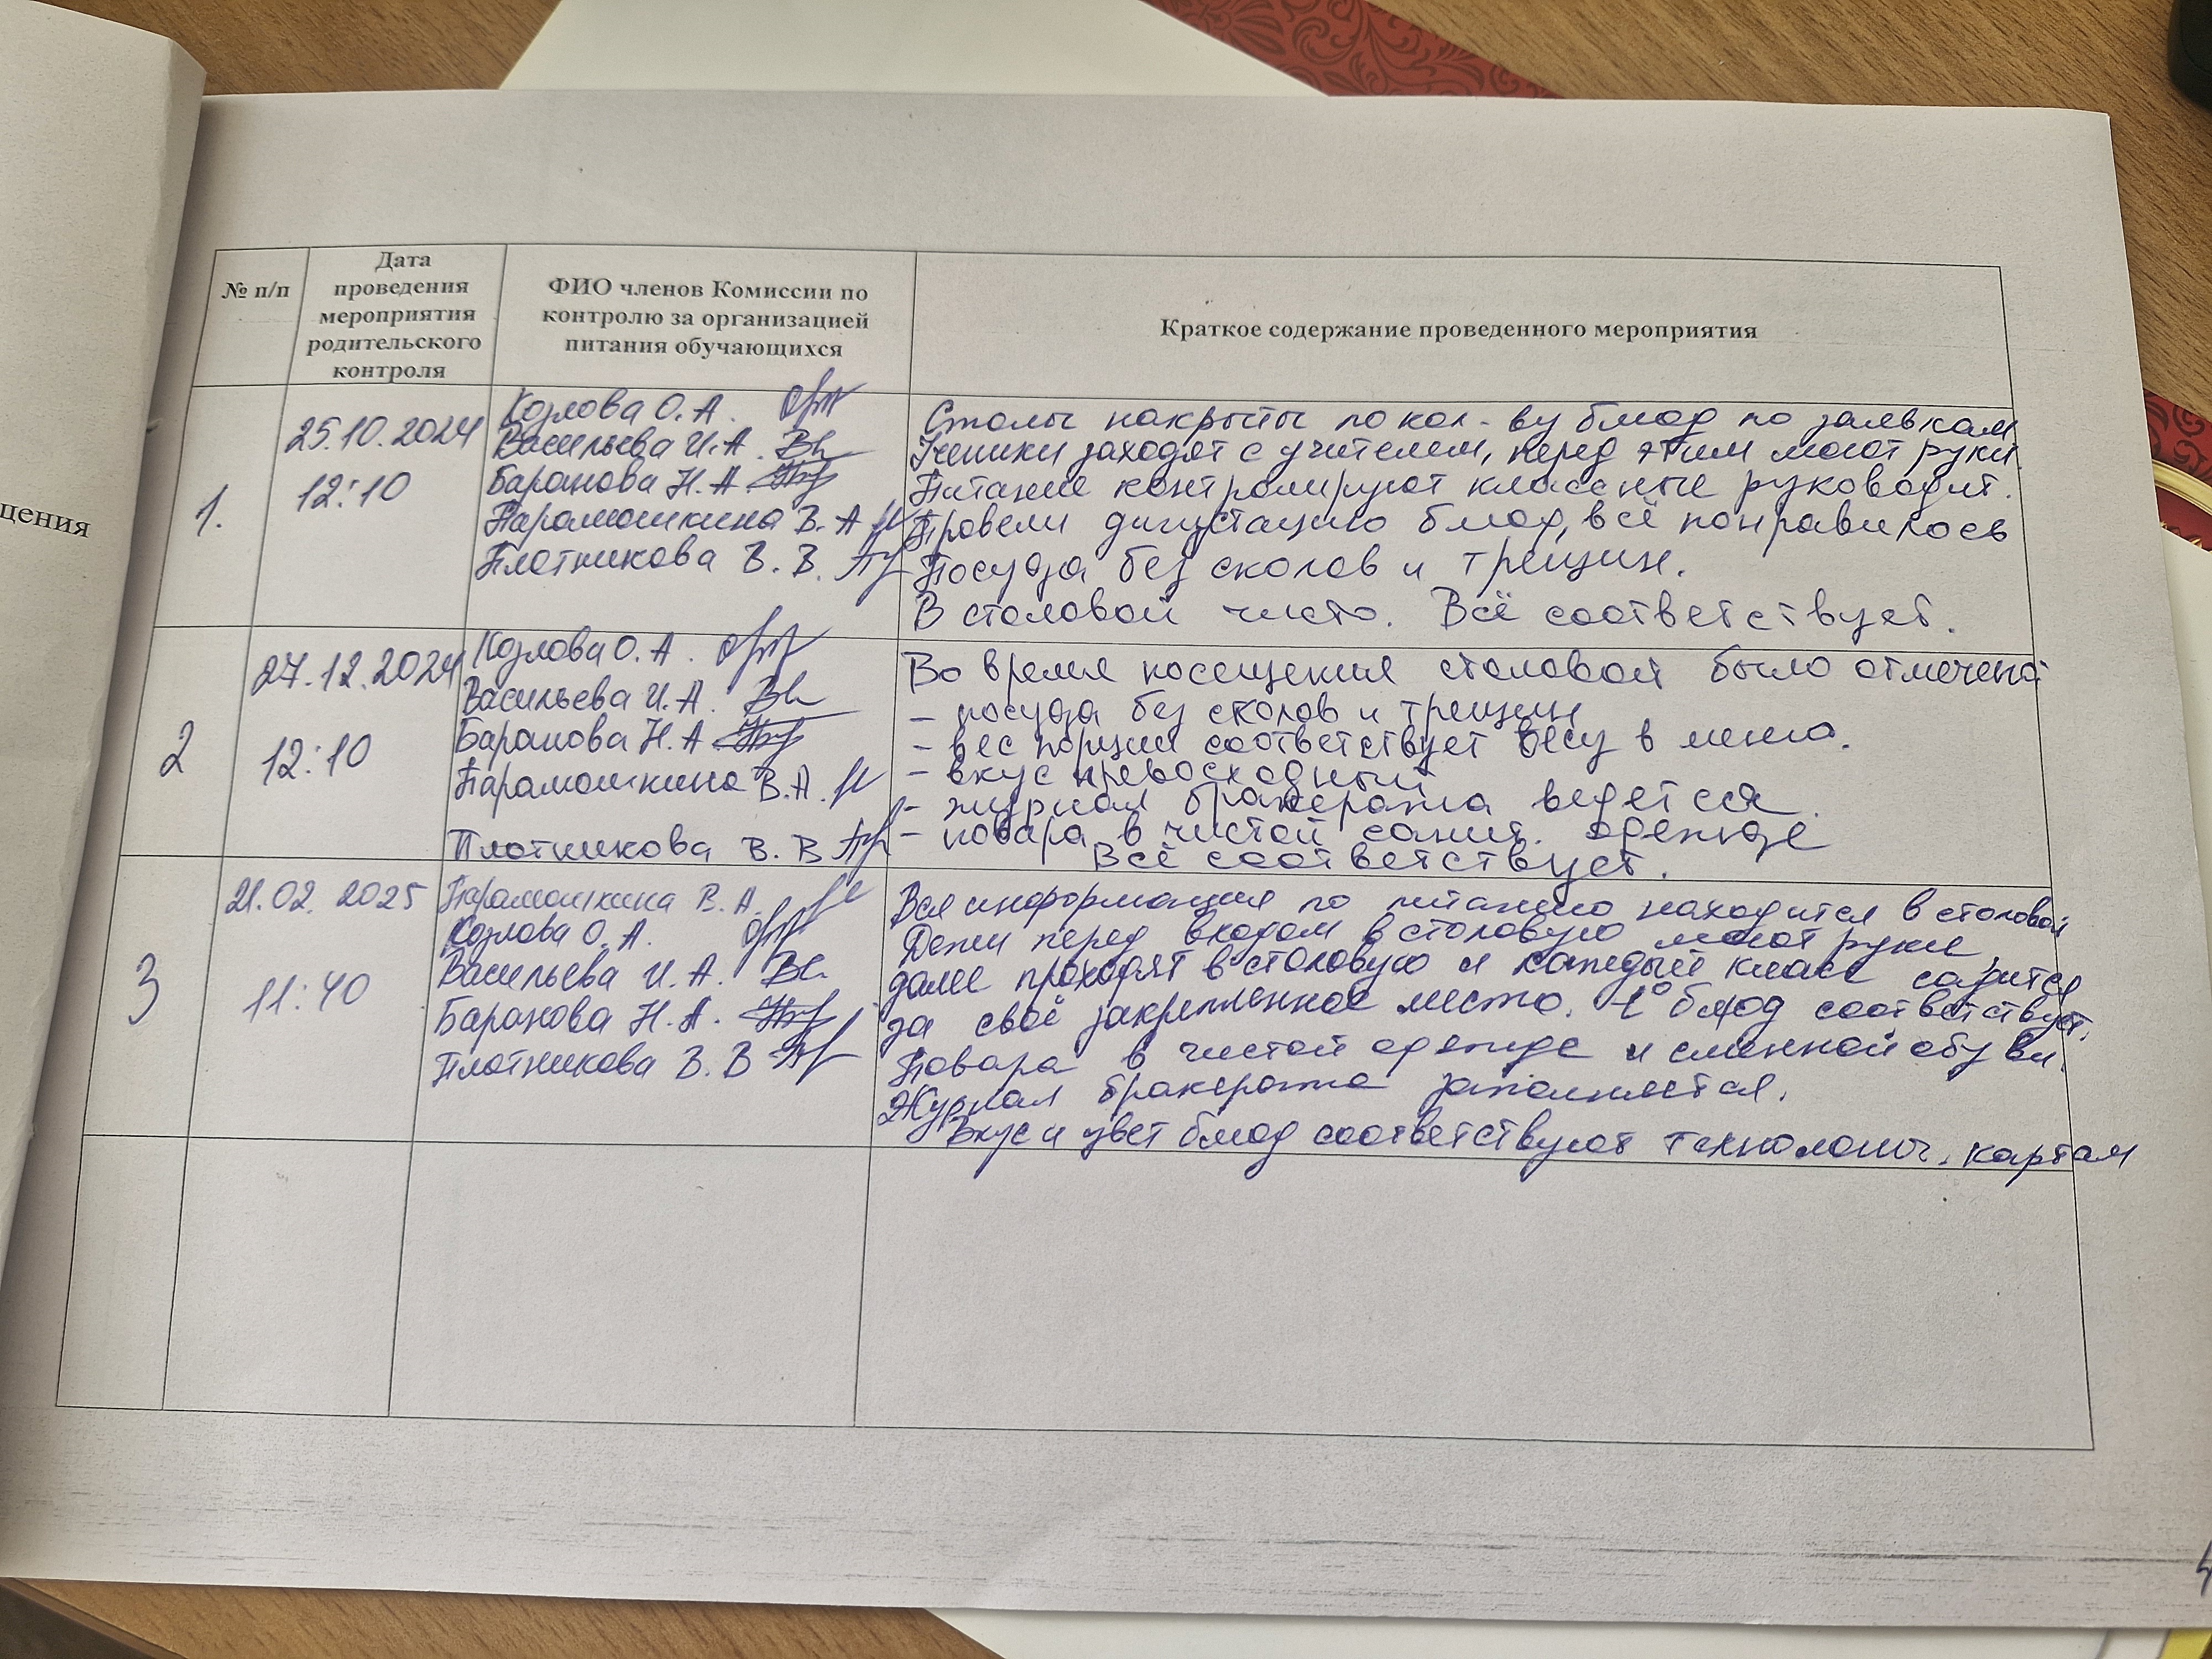 щения
№ п/п
Дата
проведения
мероприятия
родительского
контроля
ФИО членов Комиссии по
контролю за организацией
питания обучающихся
Краткое содержание проведенного мероприятия
1.
25.10.2024
12:10
Козлова О.А.
Васильева И.А.
Баранова Н.А.
Парамошкина В.А
Плотникова В.В.
Столы накрыты по кол-ву блюд по заявкам
Ученики заходят с учителем, перед этим моют руки.
Питание контролируют классные руководит.
Провели дигустацию блюд, всё понравилось
Посуда без сколов и трещин.
В столовой чисто. Всё соответствует.
2
27.12.2024
12:10
Козлова О.А.
Васильева И.А.
Баранова Н.А
Парамошкина В.А.
Плотникова В.В
Во время посещения столовой было отмечено:
- посуда без сколов и трещин
- вес порции соответствует весу в меню.
- вкус превосходный
- журнал бракеража ведется.
- повара в чистой санит. одежде
Всё соответствует.
3
21.02.2025
11:40
Парамошкина В.А.
Козлова О.А.
Васильева И.А.
Баранова Н.А.
Плотникова В.В
Вся информация по питанию находится в столовой
Дети перед входом в столовую моют руки
далее проходят в столовую и каждый класс садится
за своё закрепленное место. t° блюд соответствует.
Повара в чистой одежде и сменной обуви.
Журнал бракеража заполняется.
Вкус и цвет блюд соответствуют технологич. картам